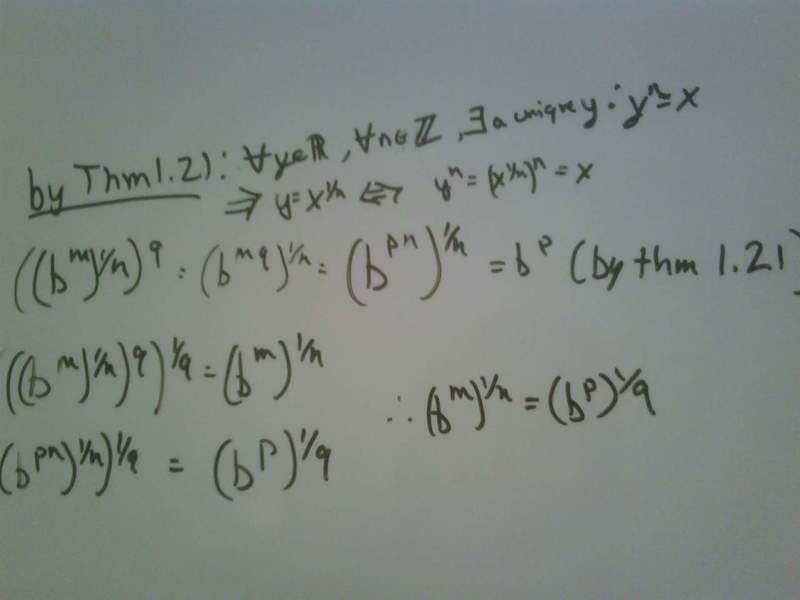 by Thm 1.21: ∀y∈ℝ, ∀n∈ℤ, ∃ a unique y : yⁿ = x
⇒ y = x^{1/n} ⇔ yⁿ = (x^{1/n})ⁿ = x
((b^m)^{1/n})^q = (b^{mq})^{1/n} = (b^{pn})^{1/n} = b^p (by thm 1.21)
((b^m)^{1/n})^q)^{1/q} = (b^m)^{1/n}
∴ (b^m)^{1/n} = (b^p)^{1/q}
(b^{pn})^{1/n})^{1/q} = (b^p)^{1/q}